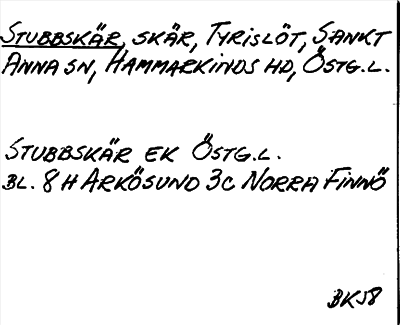 STUBBSKÄR, SKÄR, TYRISLÖT, SANKT
ANNA SN, HAMMARKINDS HD, ÖSTG.L.
STUBBSKÄR EK ÖSTG.L.
BL. 8 H ARKÖSUND 3C NORRA FINNÖ
BKJ8